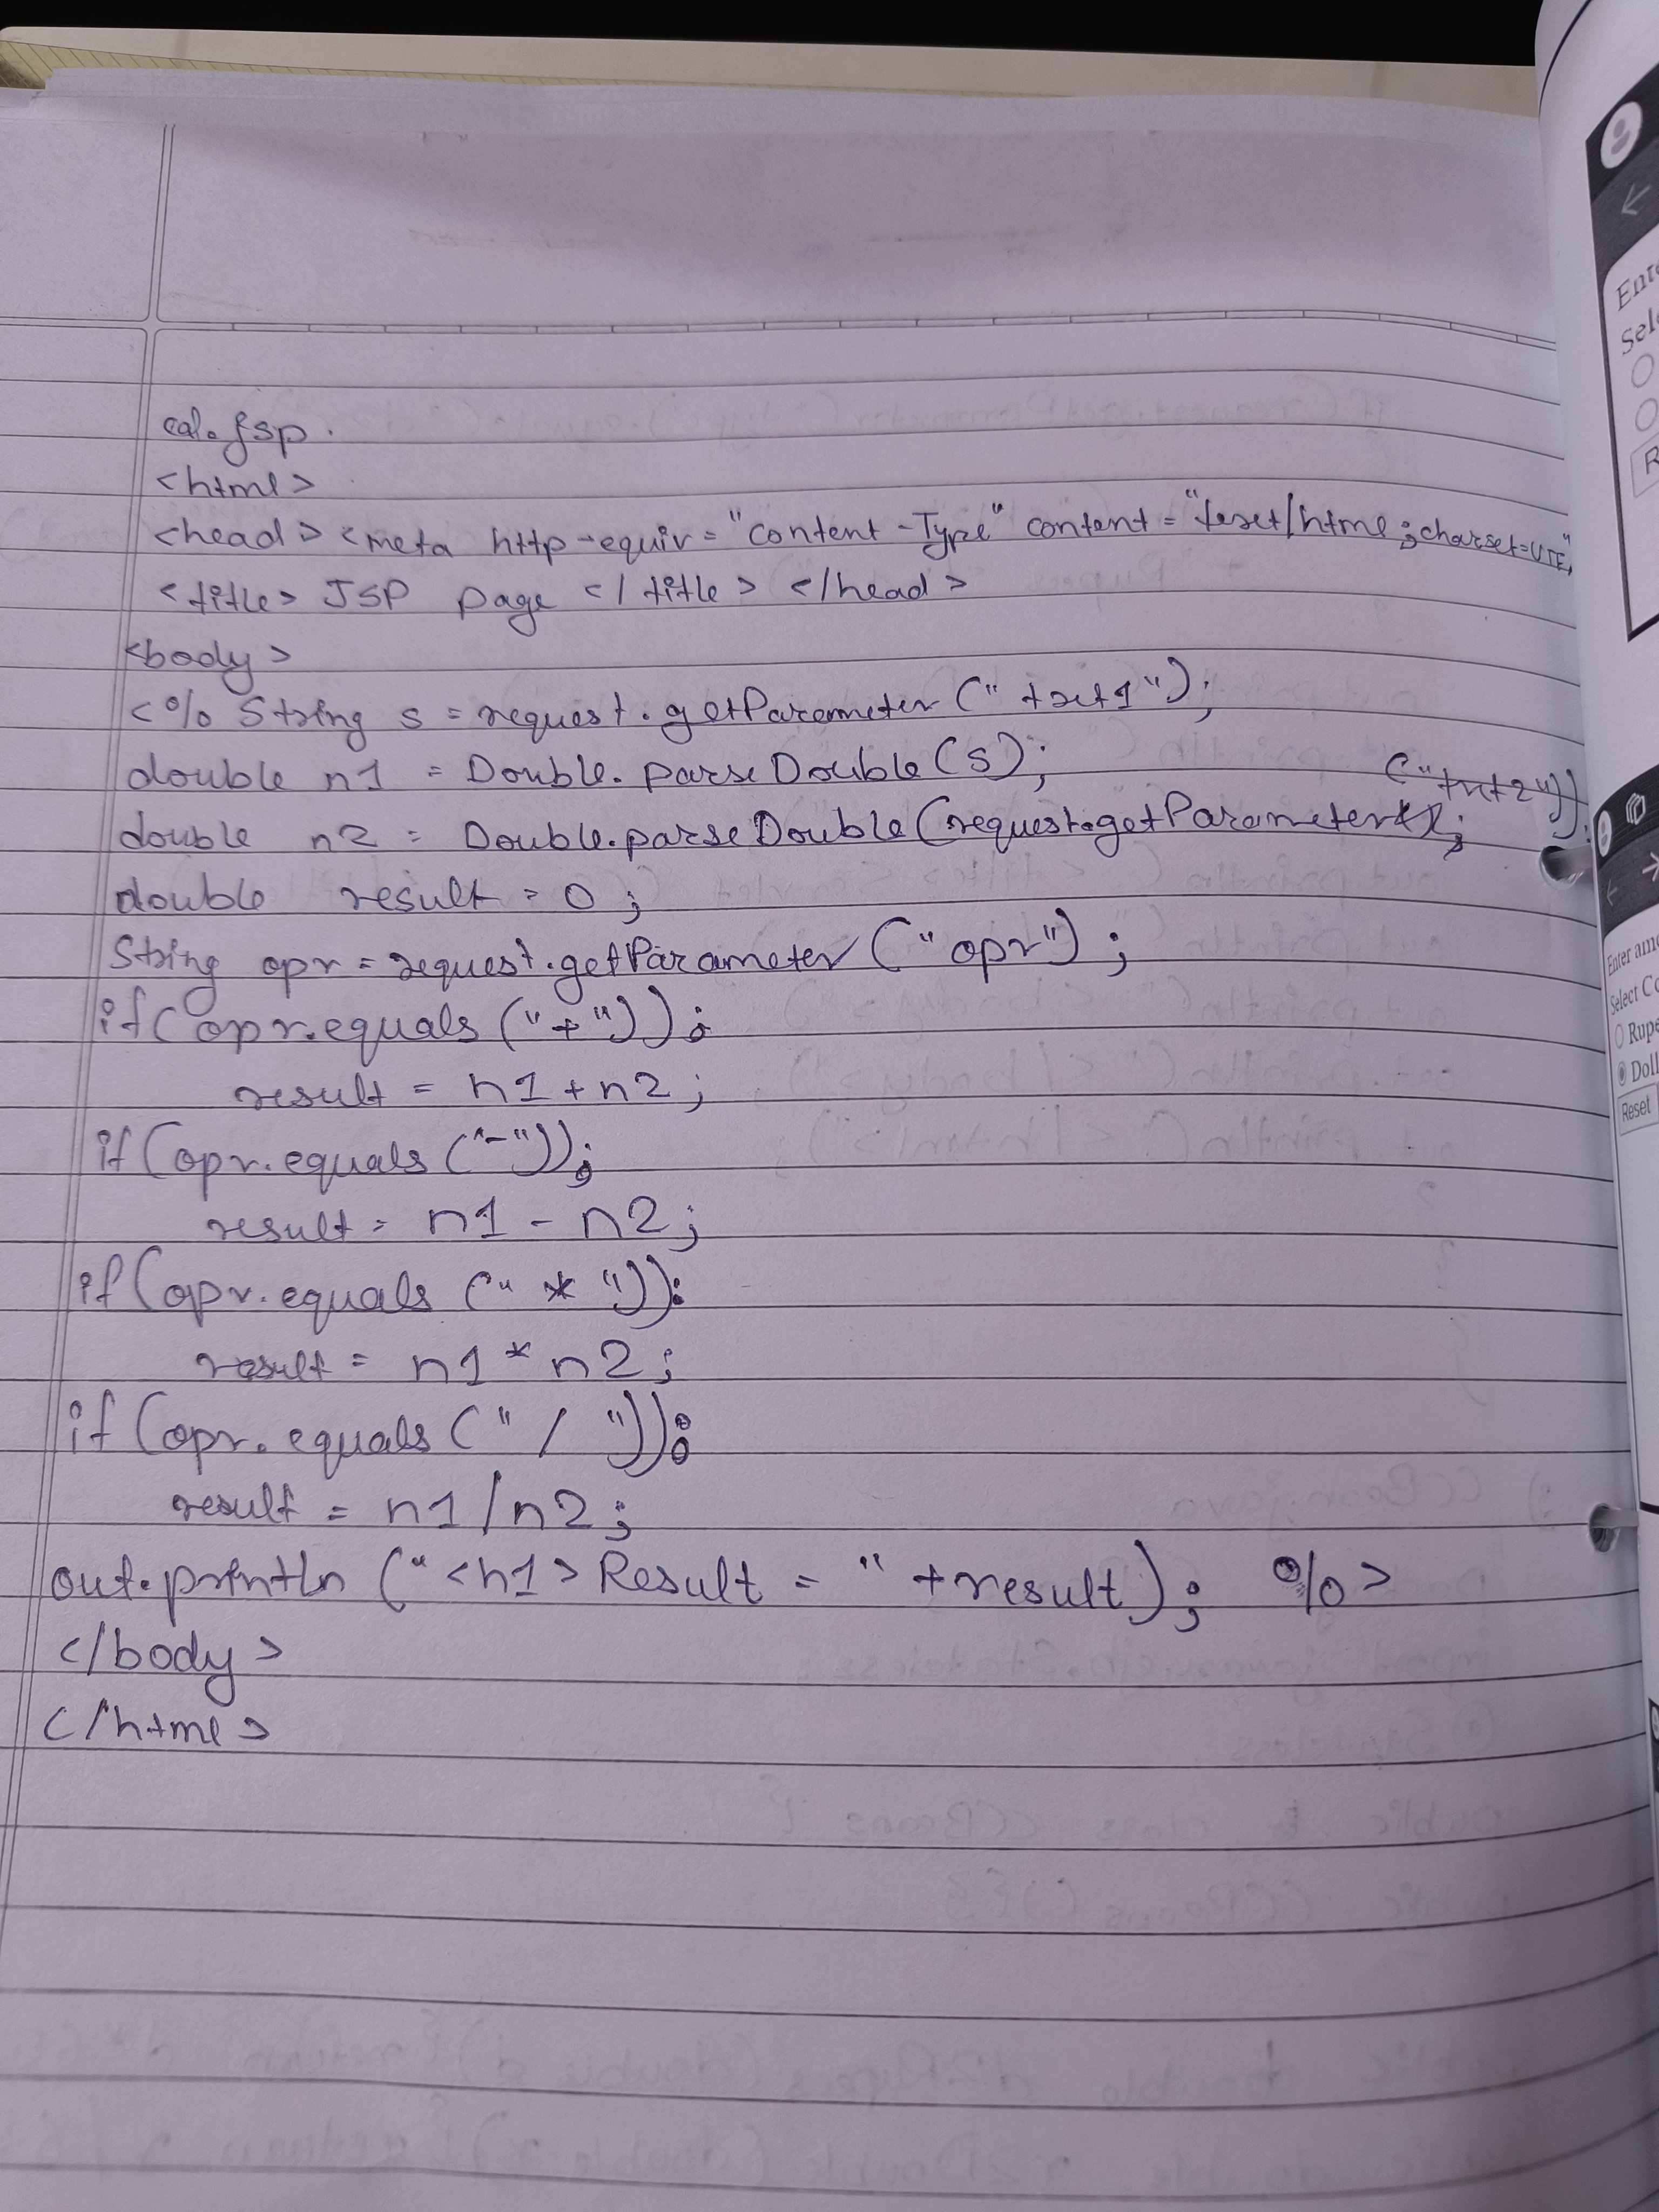 cal.jsp.
<html>
<head> <meta http-equiv="content-Type" content="text/html;charset=UTF"
<title> JSP page </title> </head>
<body>
<% String s = request.getParameter("txt1");
double n1 = Double.parseDouble(s);
double n2 = Double.parseDouble(request.getParameter("txt2"));
double result = 0;
String opr = request.getParameter("opr");
if(opr.equals("+"));
result = n1+n2;
if(opr.equals("-"));
result = n1 - n2;
if(opr.equals("*")):
result = n1*n2;
if(opr.equals("/")):
result = n1/n2;
out.println("<h1>Result = "+result); %>
</body>
</html>
Enter am
Select Co
Rupe
Doll
Reset